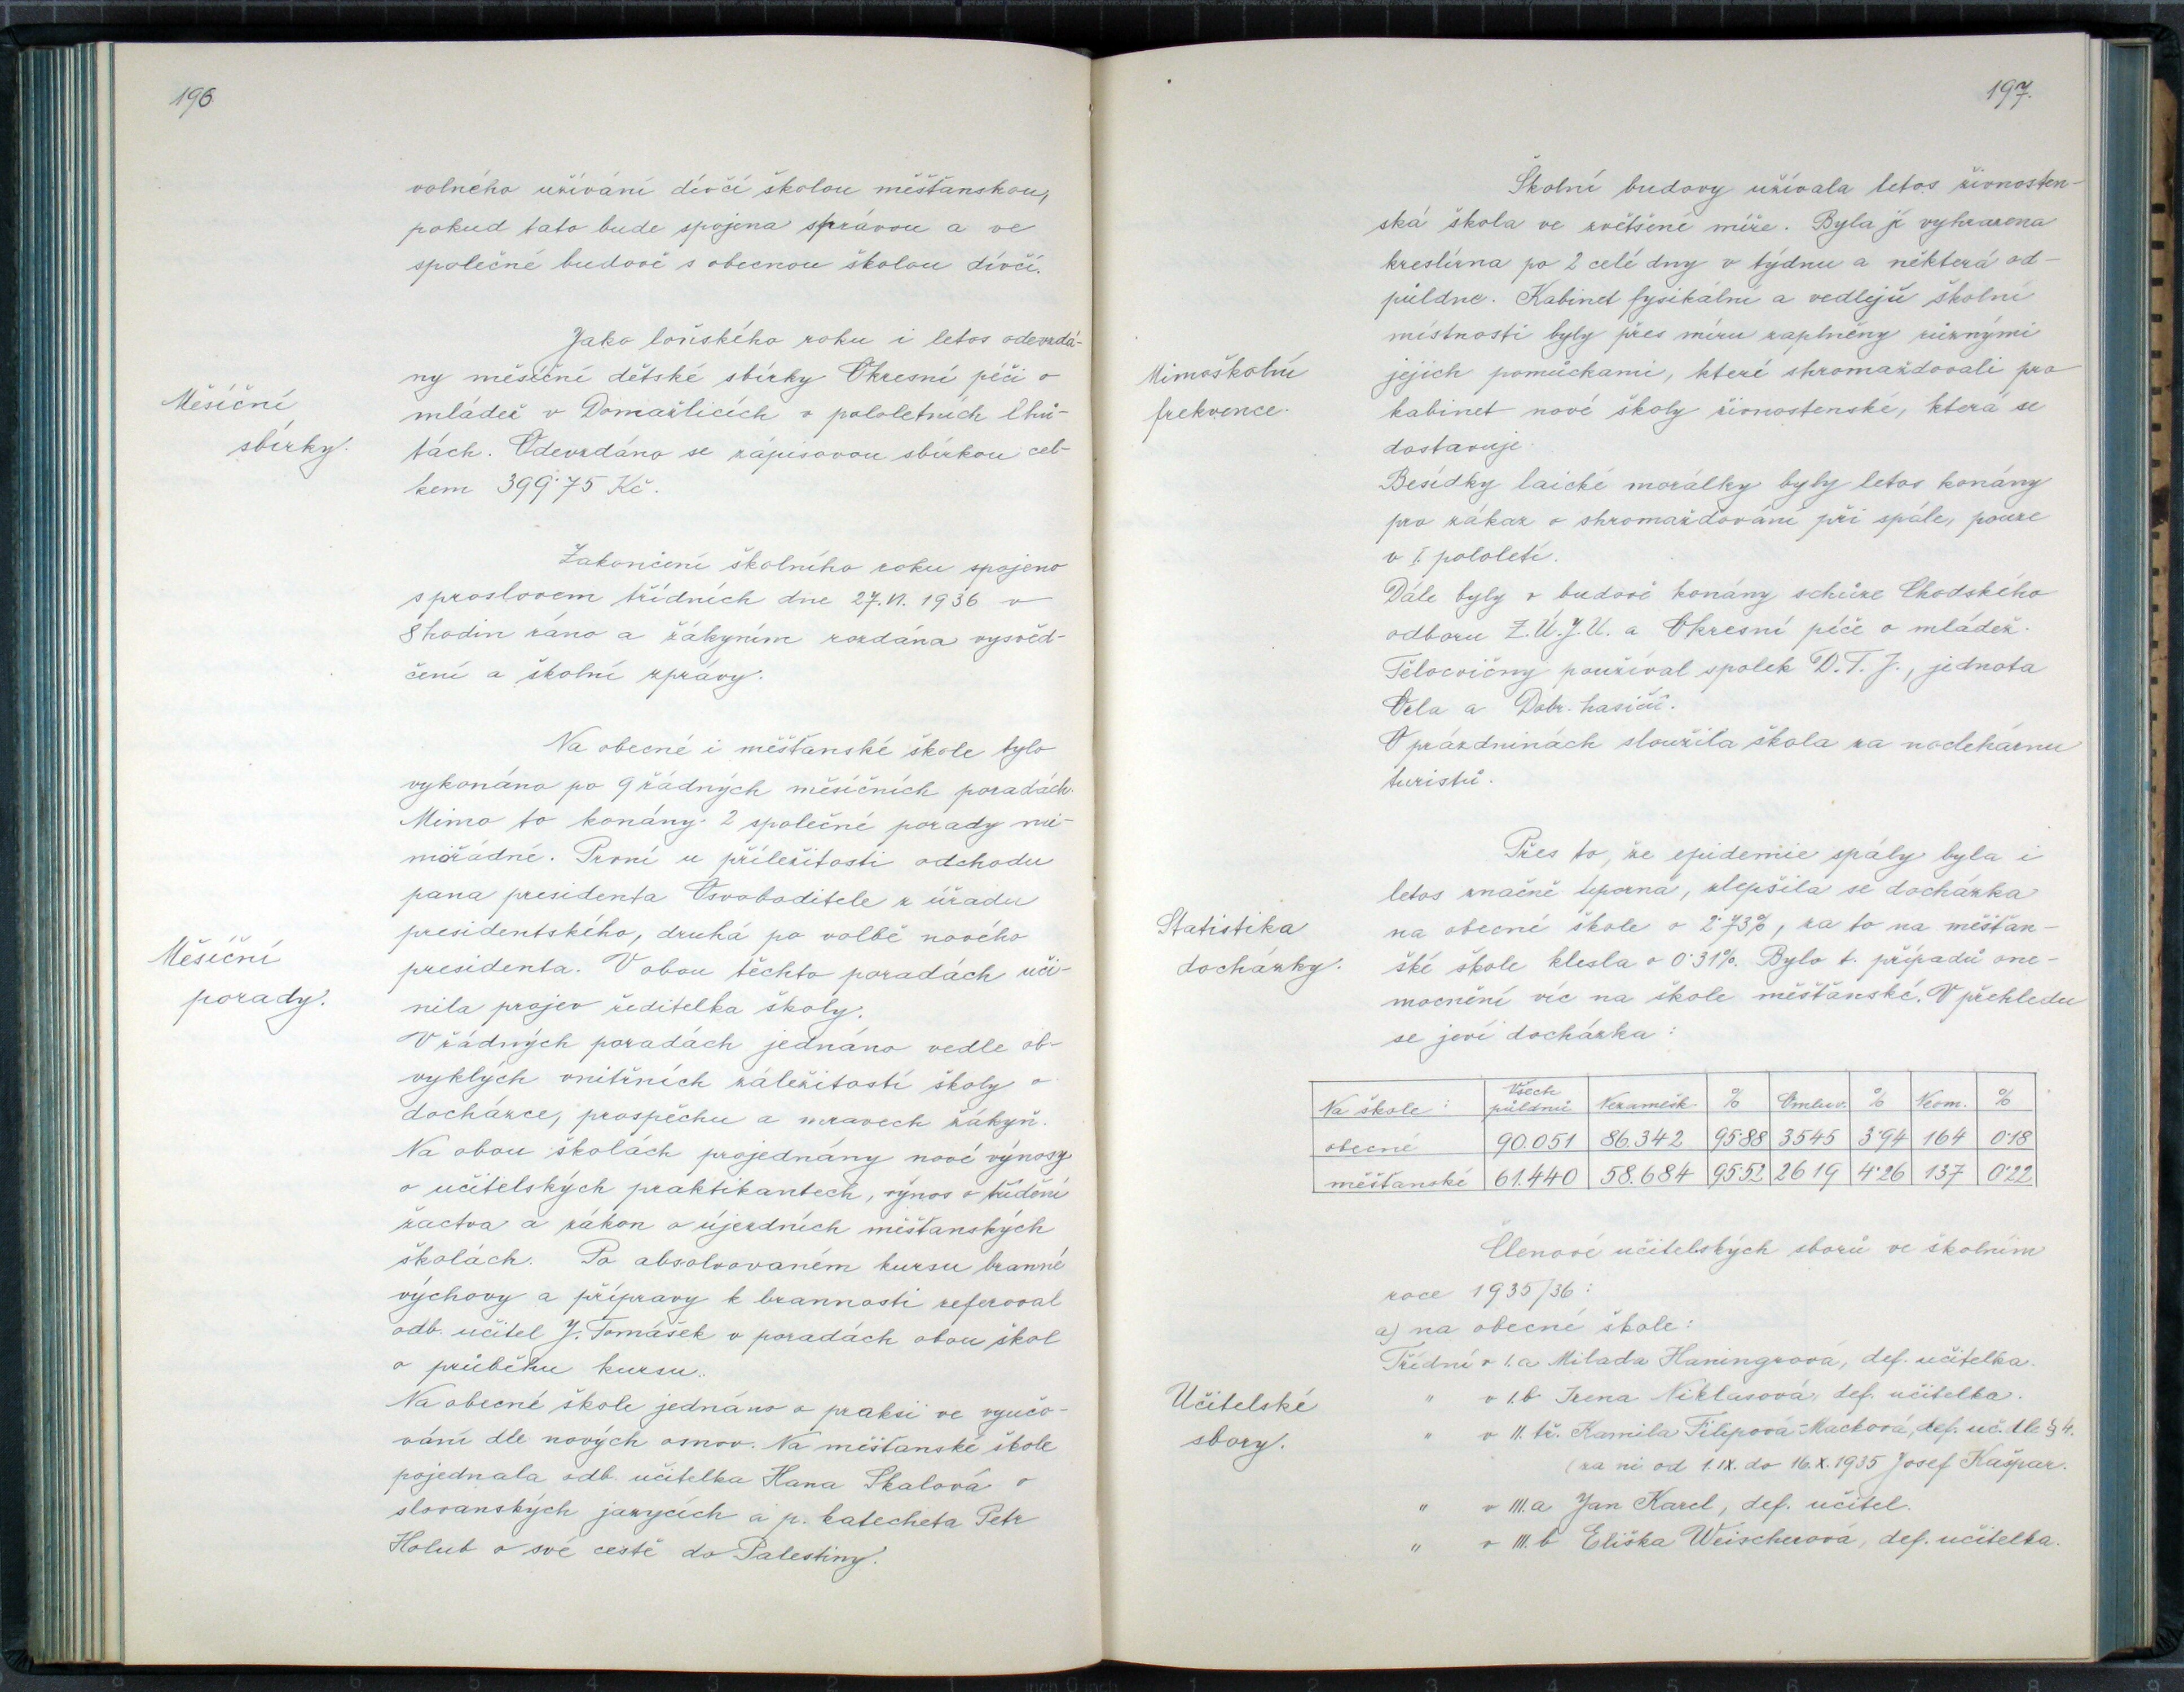 196
volného užívání dívčí školou měšťanskou,
pokud tato bude spojena správou a ve
společné budově s obecnou školou dívčí.
Jako loňského roku i letos odevzdá-
ny měsíční dětské sbírky Okresní péči o
Měsíční
mládež v Domažlicích v pololetních lhů-
sbírky.
tách. Odevzdáno se zápisovou sbírkou cel-
kem 399·75 Kč.
Zakončení školního roku spojeno
s proslovem třídních dne 27.VI. 1936 v
8 hodin ráno a žákyním rozdána vysvěd-
čení a školní zprávy.
Na obecné i měšťanské škole bylo
vykonáno po 9 řádných měsíčních poradách.
Mimo to konány 2 společné porady mi-
mořádné. První u příležitosti odchodu
pana presidenta Osvoboditele z úřadu
presidentského, druhá po volbě nového
Měsíční
presidenta. V obou těchto poradách uči-
porady.
nila projev ředitelka školy.
V řádných poradách jednáno vedle ob-
vyklých vnitřních záležitostí školy o
docházce, prospěchu a mravech žákyň.
Na obou školách projednány nové výnosy
o učitelských praktikantech, výnos o třídění
žactva a zákon o újezdních měšťanských
školách. Po absolvovaném kursu branné
výchovy a přípravy k brannosti referoval
odb. učitel J. Tomášek v poradách obou škol
o průběhu kursu.
Na obecné škole jednáno o praksi ve vyučo-
vání dle nových osnov. Na měšťanské škole
pojednala odb. učitelka Hana Skalová o
slovanských jazycích a p. katecheta Petr
Holub o své cestě do Palestiny.
197.
Školní budovy užívala letos živnosten-
ská škola ve zvětšené míře. Byla jí vyhrazena
kreslírna po 2 celé dny v týdnu a některá od-
půldne. Kabinet fysikální a vedlejší školní
místnosti byly přes míru zaplněny různými
Mimoškolní
jejich pomůckami, které shromažďovali pro
frekvence.
kabinet nové školy živnostenské, která se
dostavuje.
Besídky laické morálky byly letos konány
pro zákaz o shromažďování při spále, pouze
v I. pololetí.
Dále byly v budově konány schůze Chodského
odboru Z.Ú.J.U. a Okresní péče o mládež.
Tělocvičny používal spolek D.T.J., jednota
Orla a Dobr. hasičů.
O prázdninách sloužila škola za noclehárnu
turistů.
Přes to, že epidemie spály byla i
letos značně úporná, zlepšila se docházka
Statistika
na obecné škole o 2·73%, za to na měšťan-
docházky.
ské škole klesla o 0·31%. Bylo t. případů one-
mocnění víc na škole měšťanské. V přehledu
se jeví docházka:
Na škole: Všech půldnů Nezamešk. % Omluv. % Neom. %
obecné 90.051 86.342 95·88 3545 3·94 164 0·18
měšťanské 61.440 58.684 95·52 2619 4·26 137 0·22
Členové učitelských sborů ve školním
roce 1935/36:
a) na obecné škole:
Třídní v I.a Milada Haningrová, def. učitelka.
Učitelské
" v I.b Irena Niklasová, def. učitelka.
sbory.
" v II. tř. Kamila Filipová-Macková, def. uč. dle § 4.
(za ni od 1.IX. do 16.X.1935 Josef Kašpar.
" v III.a Jan Karel, def. učitel.
" v III.b Eliška Weischerová, def. učitelka.